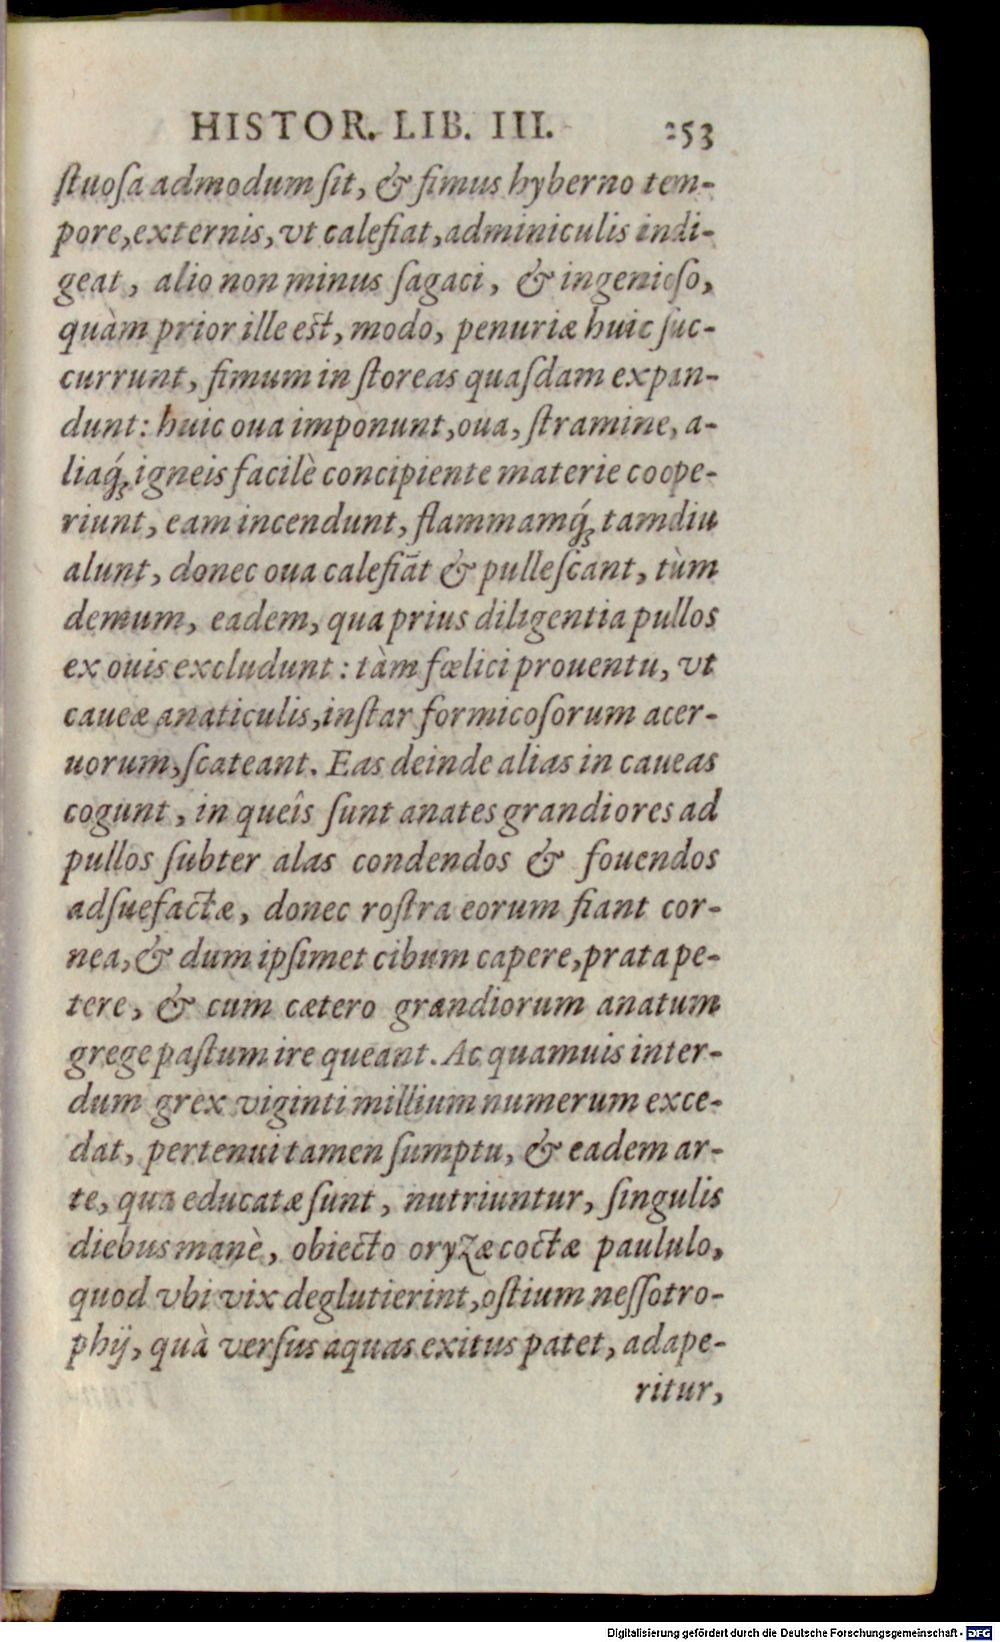 HISTOR. LIB. III. 253
ſtuoſa admodum ſit, & fimus hyberno tem-
pore, externis, vt calefiat, adminiculis indi-
geat, alio non minus ſagaci, & ingenioſo,
quàm prior ille est, modo, penuriæ huic ſuc-
currunt, fimum in ſtoreas quaſdam expan-
dunt: huic oua imponunt, oua, ſtramine, a-
liaq́ꝫ igneis facilè concipiente materie coope-
riunt, eam incendunt, flammamq́ꝫ tamdiu
alunt, donec oua calefiāt & pulleſcant, tùm
demum, eadem, qua prius diligentia pullos
ex ouis excludunt: tàm fœlici prouentu, vt
caueæ anaticulis, inſtar formicoſorum acer-
uorum, ſcateant. Eas deinde alias in caueas
cogunt, in queîs ſunt anates grandiores ad
pullos ſubter alas condendos & fouendos
adſuefactæ, donec roſtra eorum fiant cor-
nea, & dum ipſimet cibum capere, prata pe-
tere, & cum cætero grandiorum anatum
grege paſtum ire queant. Ac quamuis inter-
dum grex viginti millium numerum exce-
dat, pertenui tamen ſumptu, & eadem ar-
te, qua educatæ ſunt, nutriuntur, ſingulis
diebus manè, obiecto oryzæ coctæ paululo,
quod vbi vix deglutierint, oſtium neſſotro-
phij, quà verſus aquas exitus patet, adape-
ritur,
Digitalisierung gefördert durch die Deutsche Forschungsgemeinschaft - DFG